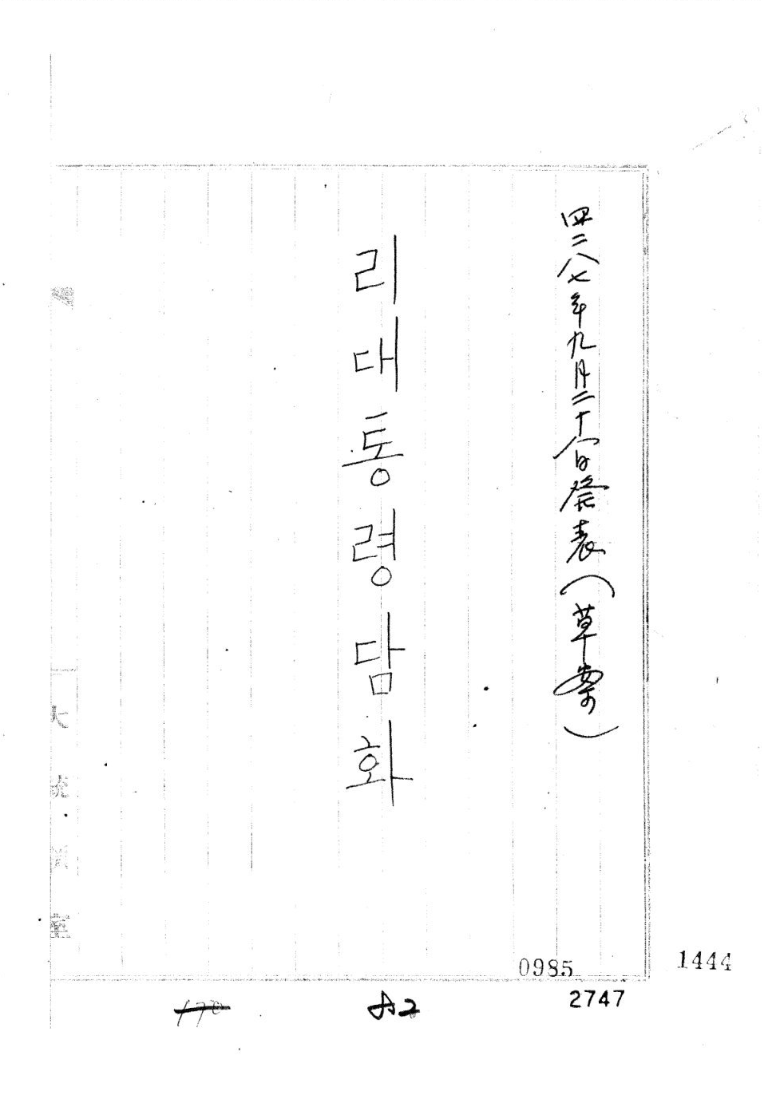 四二八七年九月二十八日發表(草案)
리대통령담화
大統領室
0985
1444
2747